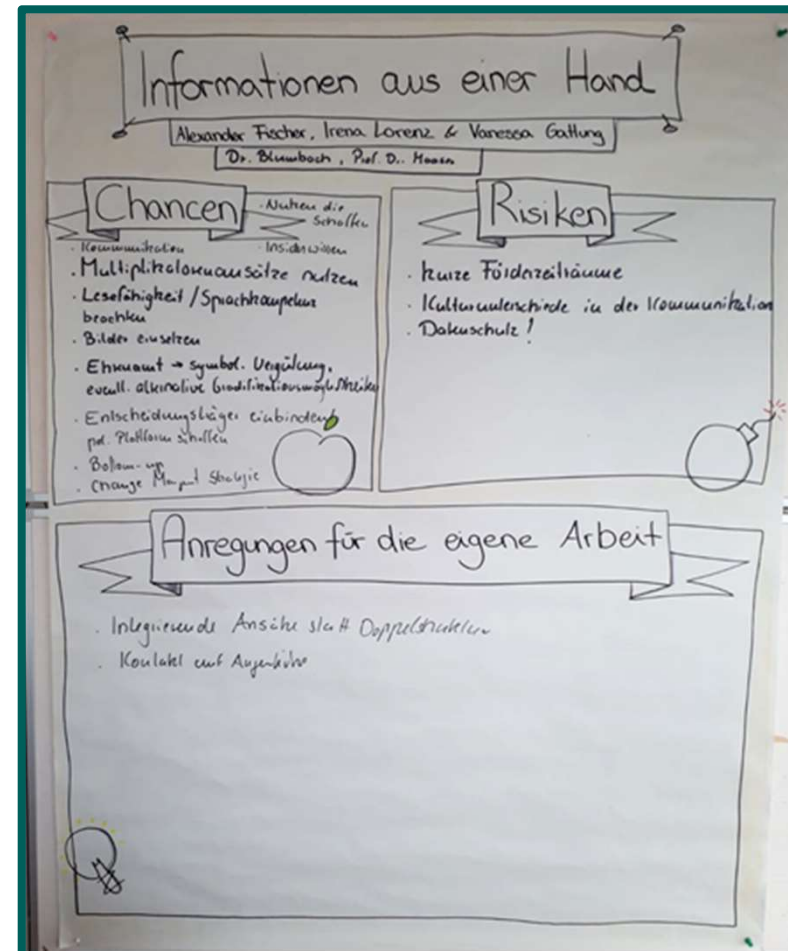 Informationen aus einer Hand
Alexander Fischer, Irena Lorenz & Vanessa Gattung
Dr. Blumbach, Prof. D..
Chancen
· Nutzen die
schaffen
· Kommunikation
· Insiderwissen
· Multiplikatorenansätze nutzen
· Lesefähigkeit / Sprachkompetenz
beachten
· Bilder einsetzen
· Ehrenamt → symbol. Vergütung,
evtll. alternative
· Entscheidungsträger einbinden
pol. Plattform schaffen
· Bottom-up
· Change Strategie
Risiken
· kurze Förderzeiträume
· Kulturunterschiede in der Kommunikation
· Datenschutz!
Anregungen für die eigene Arbeit
· Integrierende Ansätze statt Doppelstrukturen
· Kontakt auf Augenhöhe